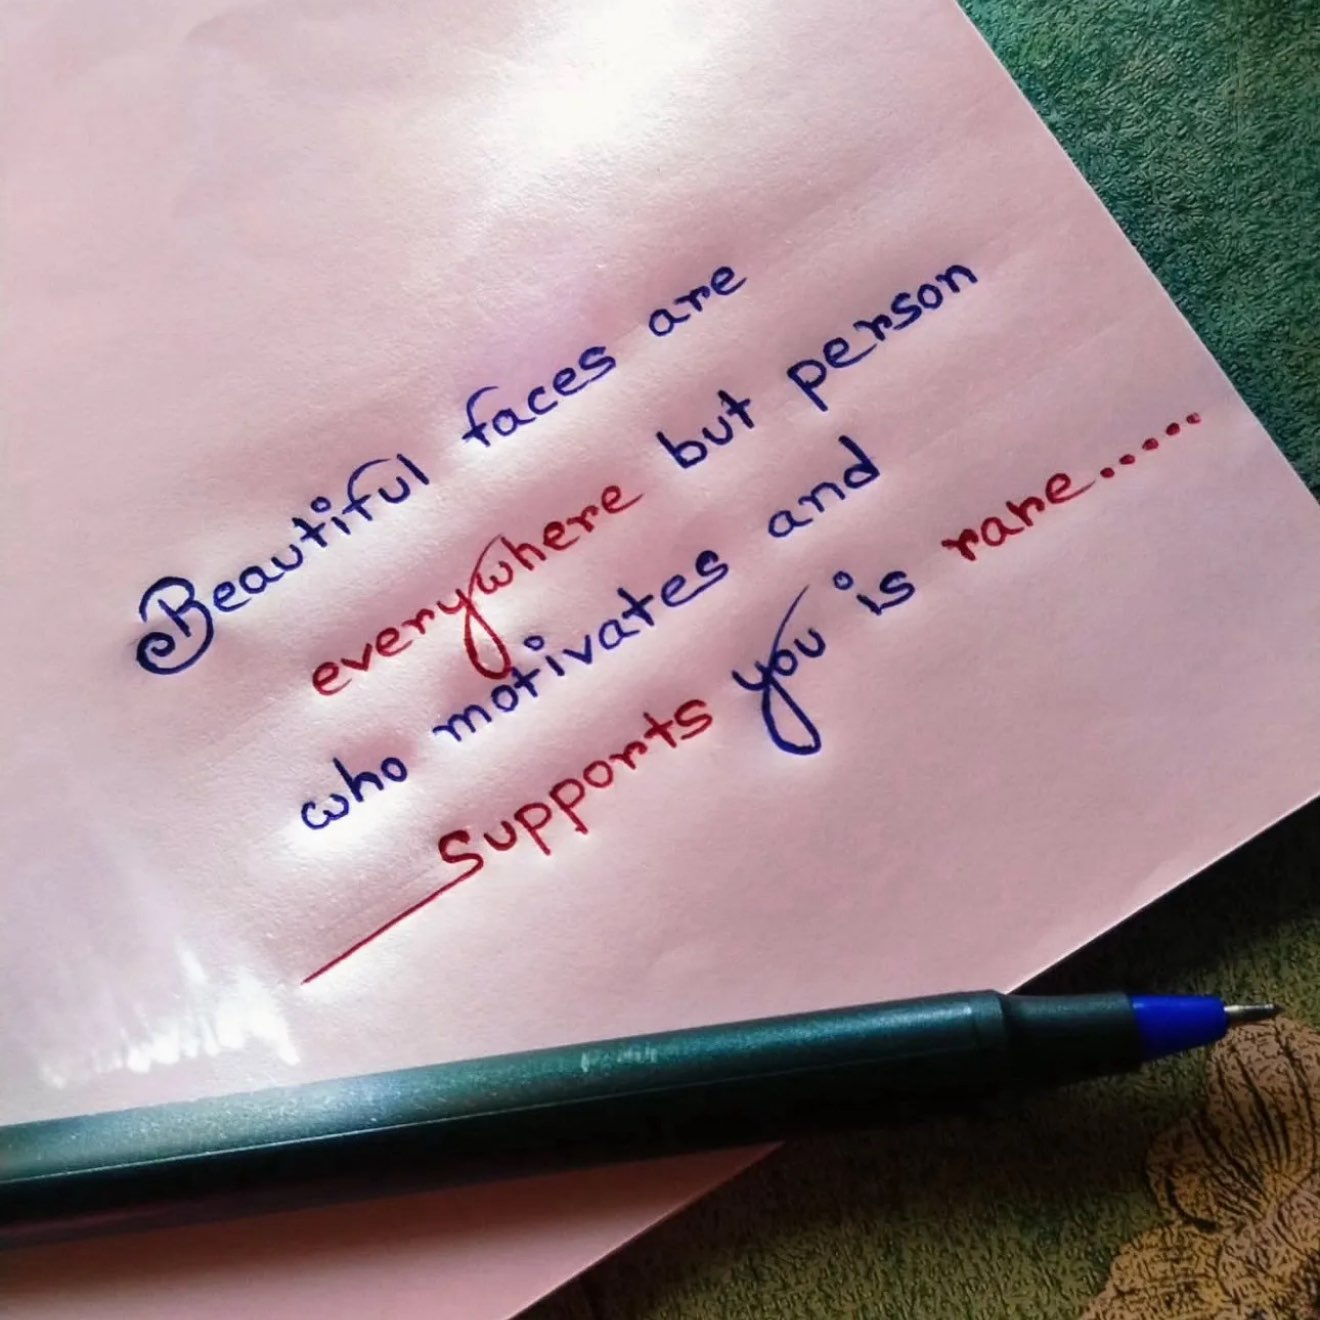 Beautiful faces are
everywhere but person
who motivates and
Supports you is rare.....